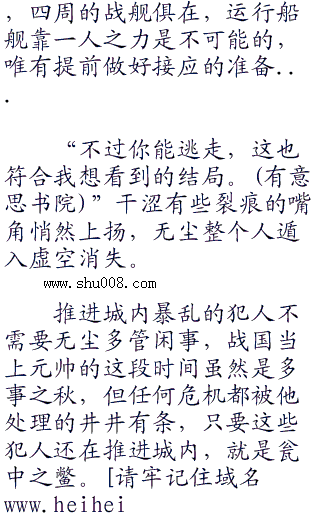 ，四周的战舰俱在，运行船
舰靠一人之力是不可能的，
唯有提前做好接应的准备..
.
“不过你能逃走，这也
符合我想看到的结局。(有意
思书院)”干涩有些裂痕的嘴
角悄然上扬，无尘整个人遁
入虚空消失。
www.shu008.com
推进城内暴乱的犯人不
需要无尘多管闲事，战国当
上元帅的这段时间虽然是多
事之秋，但任何危机都被他
处理的井井有条，只要这些
犯人还在推进城内，就是瓮
中之鳖。[请牢记住域名
www.heihei